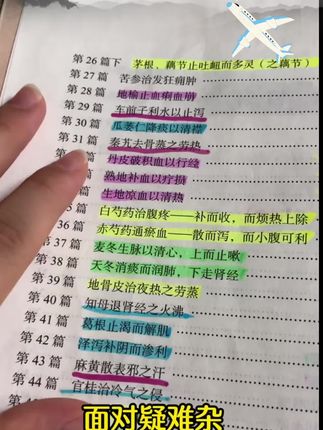 第26篇下 茅根，藕节止吐衄而多灵（之藕节）
第27篇 苦参治发狂痈肿
第28篇 地榆止血痢血崩
第29篇 车前子利水以止泻
第30篇 瓜蒌仁降痰以清襟
第31篇 秦艽去骨蒸之劳热
丹皮破积血以行经
熟地补血以疗损
生地凉血以清热
5篇 白芍药治腹疼——补而收，而烦热上除
36篇 赤芍药通瘀血——散而泻，而小腹可利
第37篇 麦冬生脉以清心，上而止嗽
第38篇 天冬消痰而润肺，下走肾经
第39篇 地骨皮治夜热之劳蒸
第40篇 知母退肾经之火沸
第41篇 葛根止渴而解肌
第42篇 泽泻补阴而渗利
第43篇 麻黄散表邪之汗
第44篇 官桂治冷气之侵
面对疑难杂